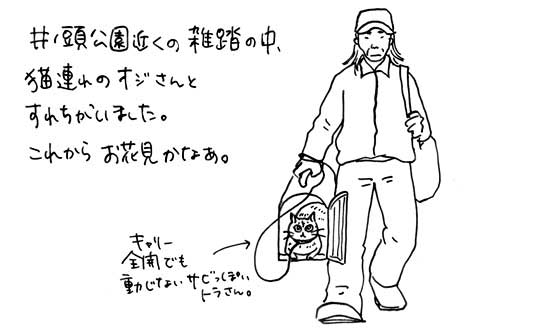 井ノ頭公園近くの雑踏の中、
猫連れのオジさんと
すれちがいました。
これから お花見かなあ。
キャリー
全開でも
動じない サビっぽい
トラさん。